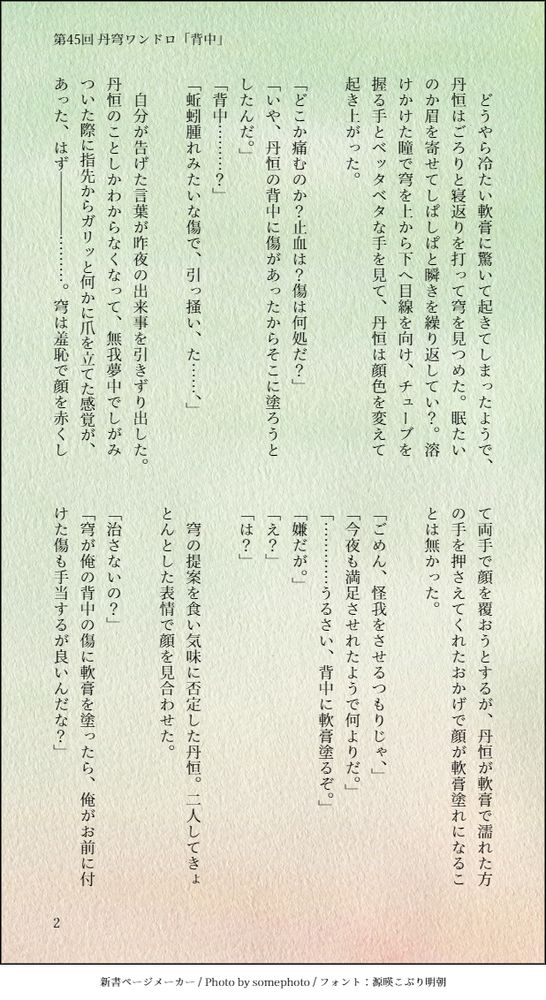 第45回 丹穹ワンドロ「背中」
どうやら冷たい軟膏に驚いて起きてしまったようで、
丹恒はごろりと寝返りを打って穹を見つめた。眠たい
のか眉を寄せてしぱしぱと瞬きを繰り返してい?。溶
けかけた瞳で穹を上から下へ目線を向け、チューブを
握る手とベッタベタな手を見て、丹恒は顔色を変えて
起き上がった。
「どこか痛むのか？止血は？傷は何処だ？」
「いや、丹恒の背中に傷があったからそこに塗ろうと
したんだ。」
「背中………？」
「蚯蚓腫れみたいな傷で、引っ掻い、た……、」
自分が告げた言葉が昨夜の出来事を引きずり出した。
丹恒のことしかわからなくなって、無我夢中でしがみ
ついた際に指先からガリッと何かに爪を立てた感覚が、
あった、はず――………。穹は羞恥で顔を赤くし
て両手で顔を覆おうとするが、丹恒が軟膏で濡れた方
の手を押さえてくれたおかげで顔が軟膏塗れになるこ
とは無かった。
「ごめん、怪我をさせるつもりじゃ、」
「今夜も満足させれたようで何よりだ。」
「…………うるさい、背中に軟膏塗るぞ。」
「嫌だが。」
「え？」
「は？」
穹の提案を食い気味に否定した丹恒。二人してきょ
とんとした表情で顔を見合わせた。
「治さないの？」
「穹が俺の背中の傷に軟膏を塗ったら、俺がお前に付
けた傷も手当するが良いんだな？」
2
新書ページメーカー / Photo by somephoto / フォント：源暎こぶり明朝